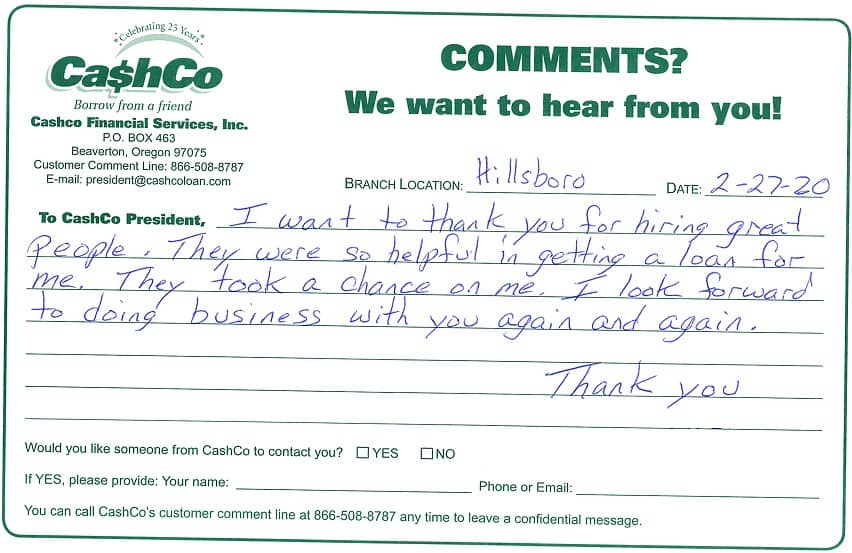 Celebrating 25 Years
Ca$hCo
Borrow from a friend
Cashco Financial Services, Inc.
P.O. BOX 463
Beaverton, Oregon 97075
Customer Comment Line: 866-508-8787
E-mail: president@cashcoloan.com
COMMENTS?
We want to hear from you!
BRANCH LOCATION: Hillsboro DATE: 2-27-20
To CashCo President, I want to thank you for hiring great
People. They were so helpful in getting a loan for
me. They took a chance on me. I look forward
to doing business with you again and again.
Thank you
Would you like someone from CashCo to contact you? ☐ YES ☐ NO
If YES, please provide: Your name: Phone or Email:
You can call CashCo's customer comment line at 866-508-8787 any time to leave a confidential message.